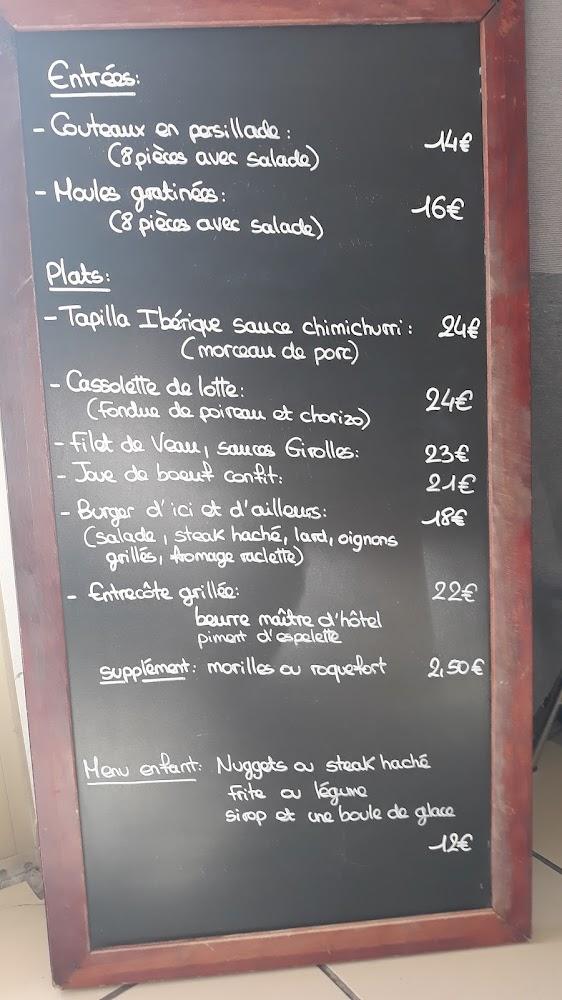 Entrées:
- Couteaux en persillade : 14€
(8 pièces avec salade)
- Moules gratinées: 16€
(8 pièces avec salade)
Plats:
- Tapilla Ibérique sauce chimichurri : 24€
(morceau de porc)
- Cassolette de lotte: 24€
(Fondue de poireau et chorizo)
- Filet de Veau, sauces Girolles: 23€
- Joue de boeuf confit: 21€
- Burger d'ici et d'ailleurs: 18€
(salade, steak haché, lard, oignons
grillés, fromage raclette)
- Entrecôte grillée: 22€
beurre maître d'hôtel
piment d'espelette
supplément: morilles ou roquefort 2,50€
Menu enfant: Nuggets ou steak haché
frite ou légume
sirop et une boule de glace
12€